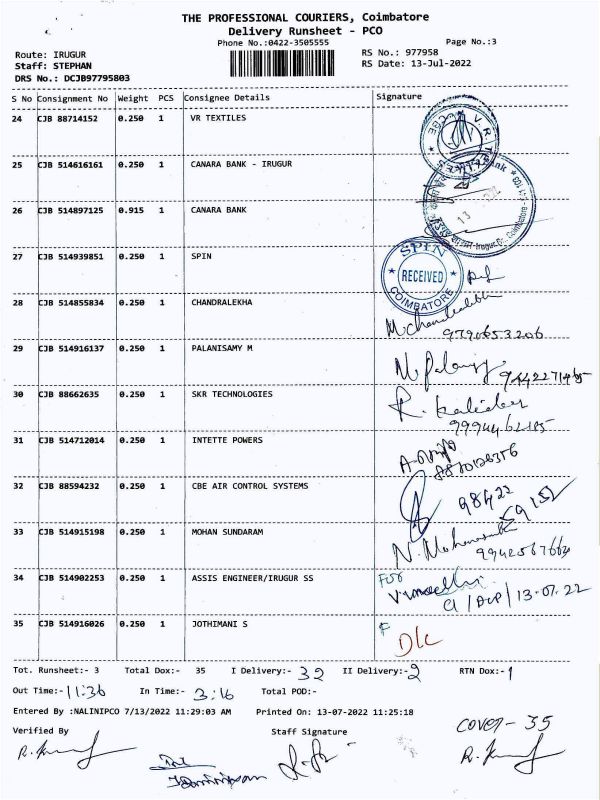 THE PROFESSIONAL COURIERS, Coimbatore
Delivery Runsheet - PCO
Phone No.:0422-3505555
Page No.:3
Route: IRUGUR
RS No.: 977958
Staff: STEPHAN
RS Date: 13-Jul-2022
DRS No.: DCJB97795803
S No Consignment No Weight PCS Consignee Details Signature
24 CJB 88714152 0.250 1 VR TEXTILES
25 CJB 514616161 0.250 1 CANARA BANK - IRUGUR
26 CJB 514897125 0.915 1 CANARA BANK
27 CJB 514939851 0.250 1 SPIN
SPIN
RECEIVED
COIMBATORE
28 CJB 514855834 0.250 1 CHANDRALEKHA
M. Chandralekha
9790653206
29 CJB 514916137 0.250 1 PALANISAMY M
30 CJB 88662635 0.250 1 SKR TECHNOLOGIES
31 CJB 514712014 0.250 1 INTETTE POWERS
32 CJB 88594232 0.250 1 CBE AIR CONTROL SYSTEMS
98422
59152
33 CJB 514915198 0.250 1 MOHAN SUNDARAM
34 CJB 514902253 0.250 1 ASSIS ENGINEER/IRUGUR SS
For
13.07.22
35 CJB 514916026 0.250 1 JOTHIMANI S
D/c
Tot. Runsheet:- 3 Total Dox:- 35 I Delivery:- 32 II Delivery:- 2 RTN Dox:- 1
Out Time:- 11:36 In Time:- 3:16 Total POD:-
Entered By :NALINIPCO 7/13/2022 11:29:03 AM Printed On: 13-07-2022 11:25:18
Verified By Staff Signature
cover - 35